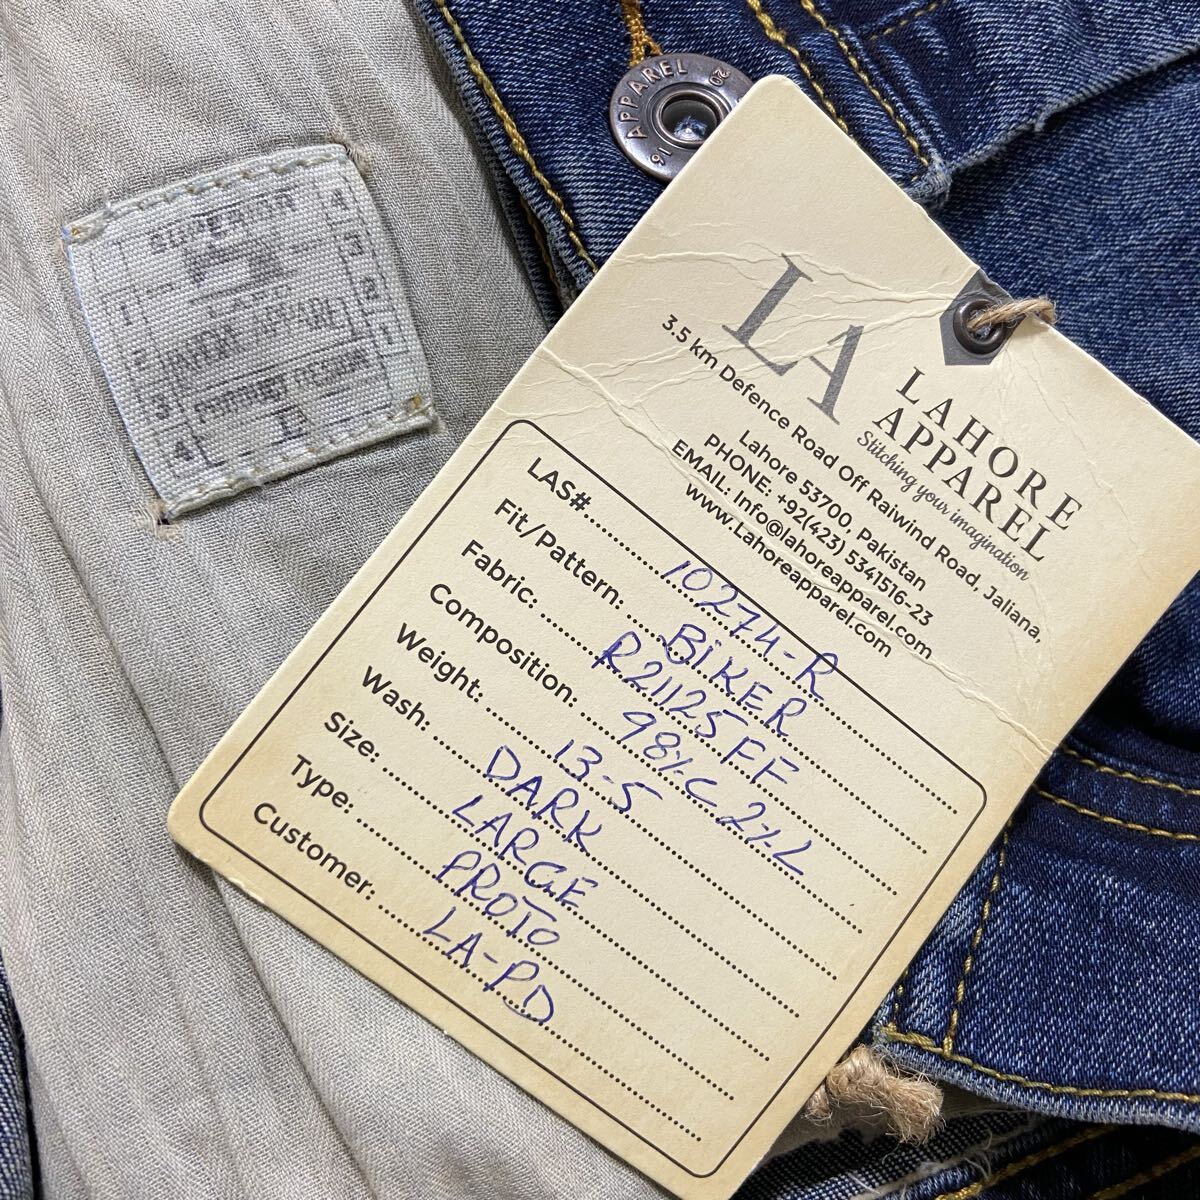 APPAREL
16
20
SUPERIOR
4
3
2
1
1
2
3
4
PRODUCT DESIGN
L
LA
LAHORE
APPAREL
Stitching your imagination
3.5 km Defence Road Off Raiwind Road, Jaliana,
Lahore 53700, Pakistan
PHONE: +92(423) 5341516-23
EMAIL: Info@lahoreapparel.com
www.Lahoreapparel.com
LAS#. 10274-R
Fit/Pattern: BIKER
Fabric: R21125FF
Composition: 98%C 2%L
Weight: 13-5
Wash. DARK
Size: LARGE
Type. PROTO
Customer. LA-PD